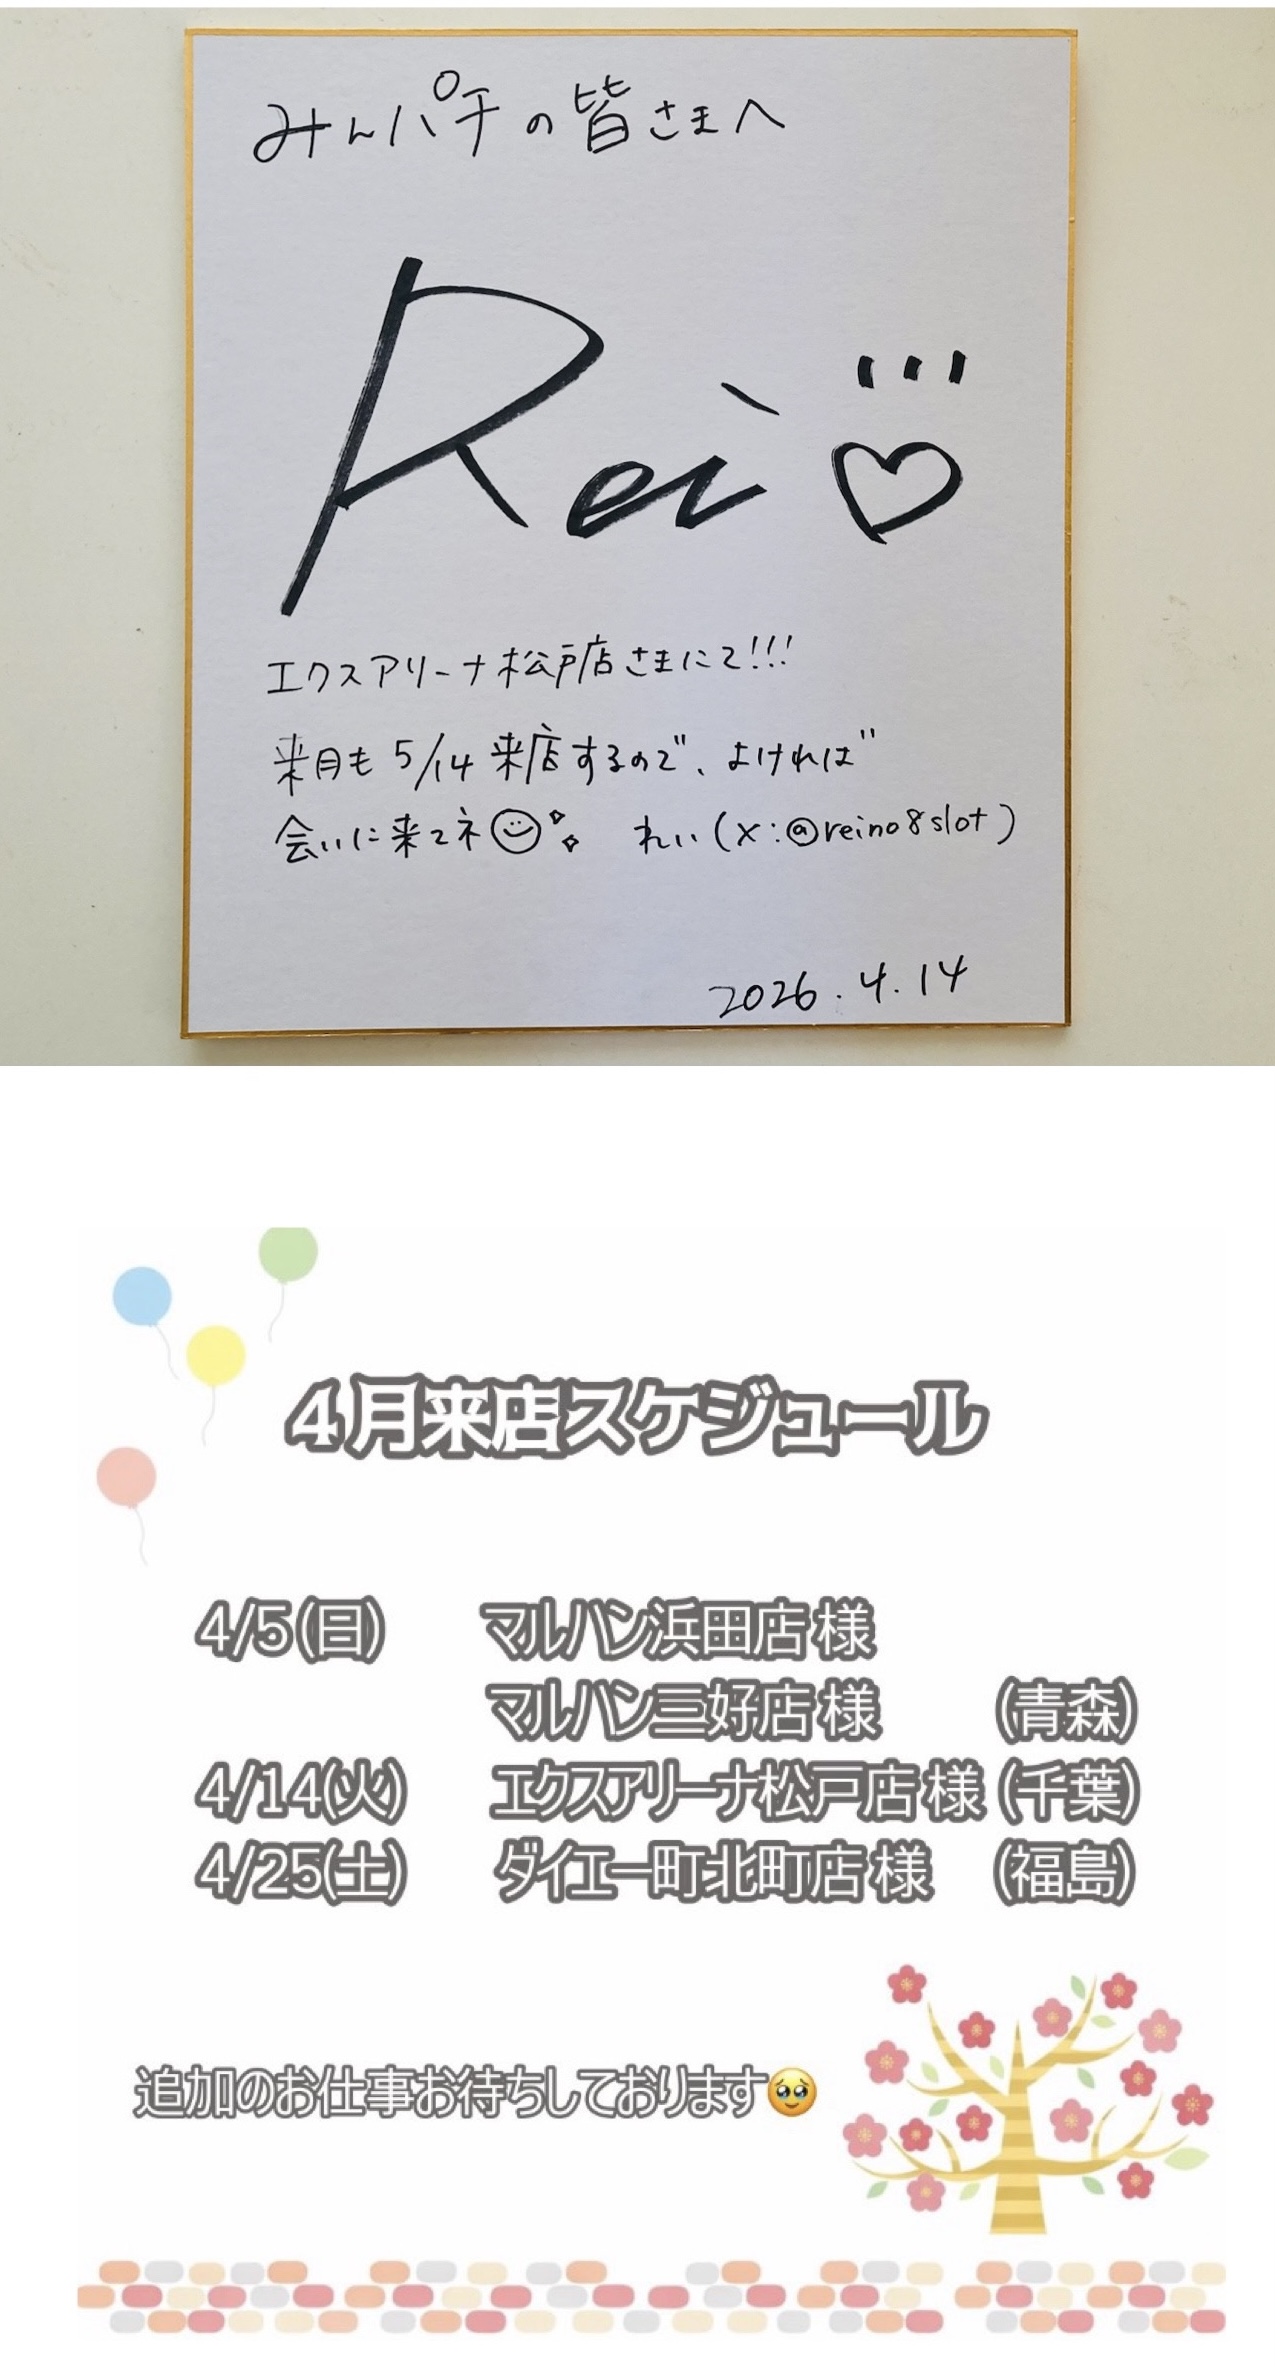 みんパチの皆さまへ
Rei
エクスアリーナ松戸店さまにて!!!
来月も5/14来店するので、よければ
会いに来てネ れい(X:@reino8slot)
2026.4.14
4月来店スケジュール
4/5(日) マルハン浜田店様
マルハン三好店様 (青森)
4/14(火) エクスアリーナ松戸店様 (千葉)
4/25(土) ダイエー町北町店様 (福島)
追加のお仕事お待ちしております🥹